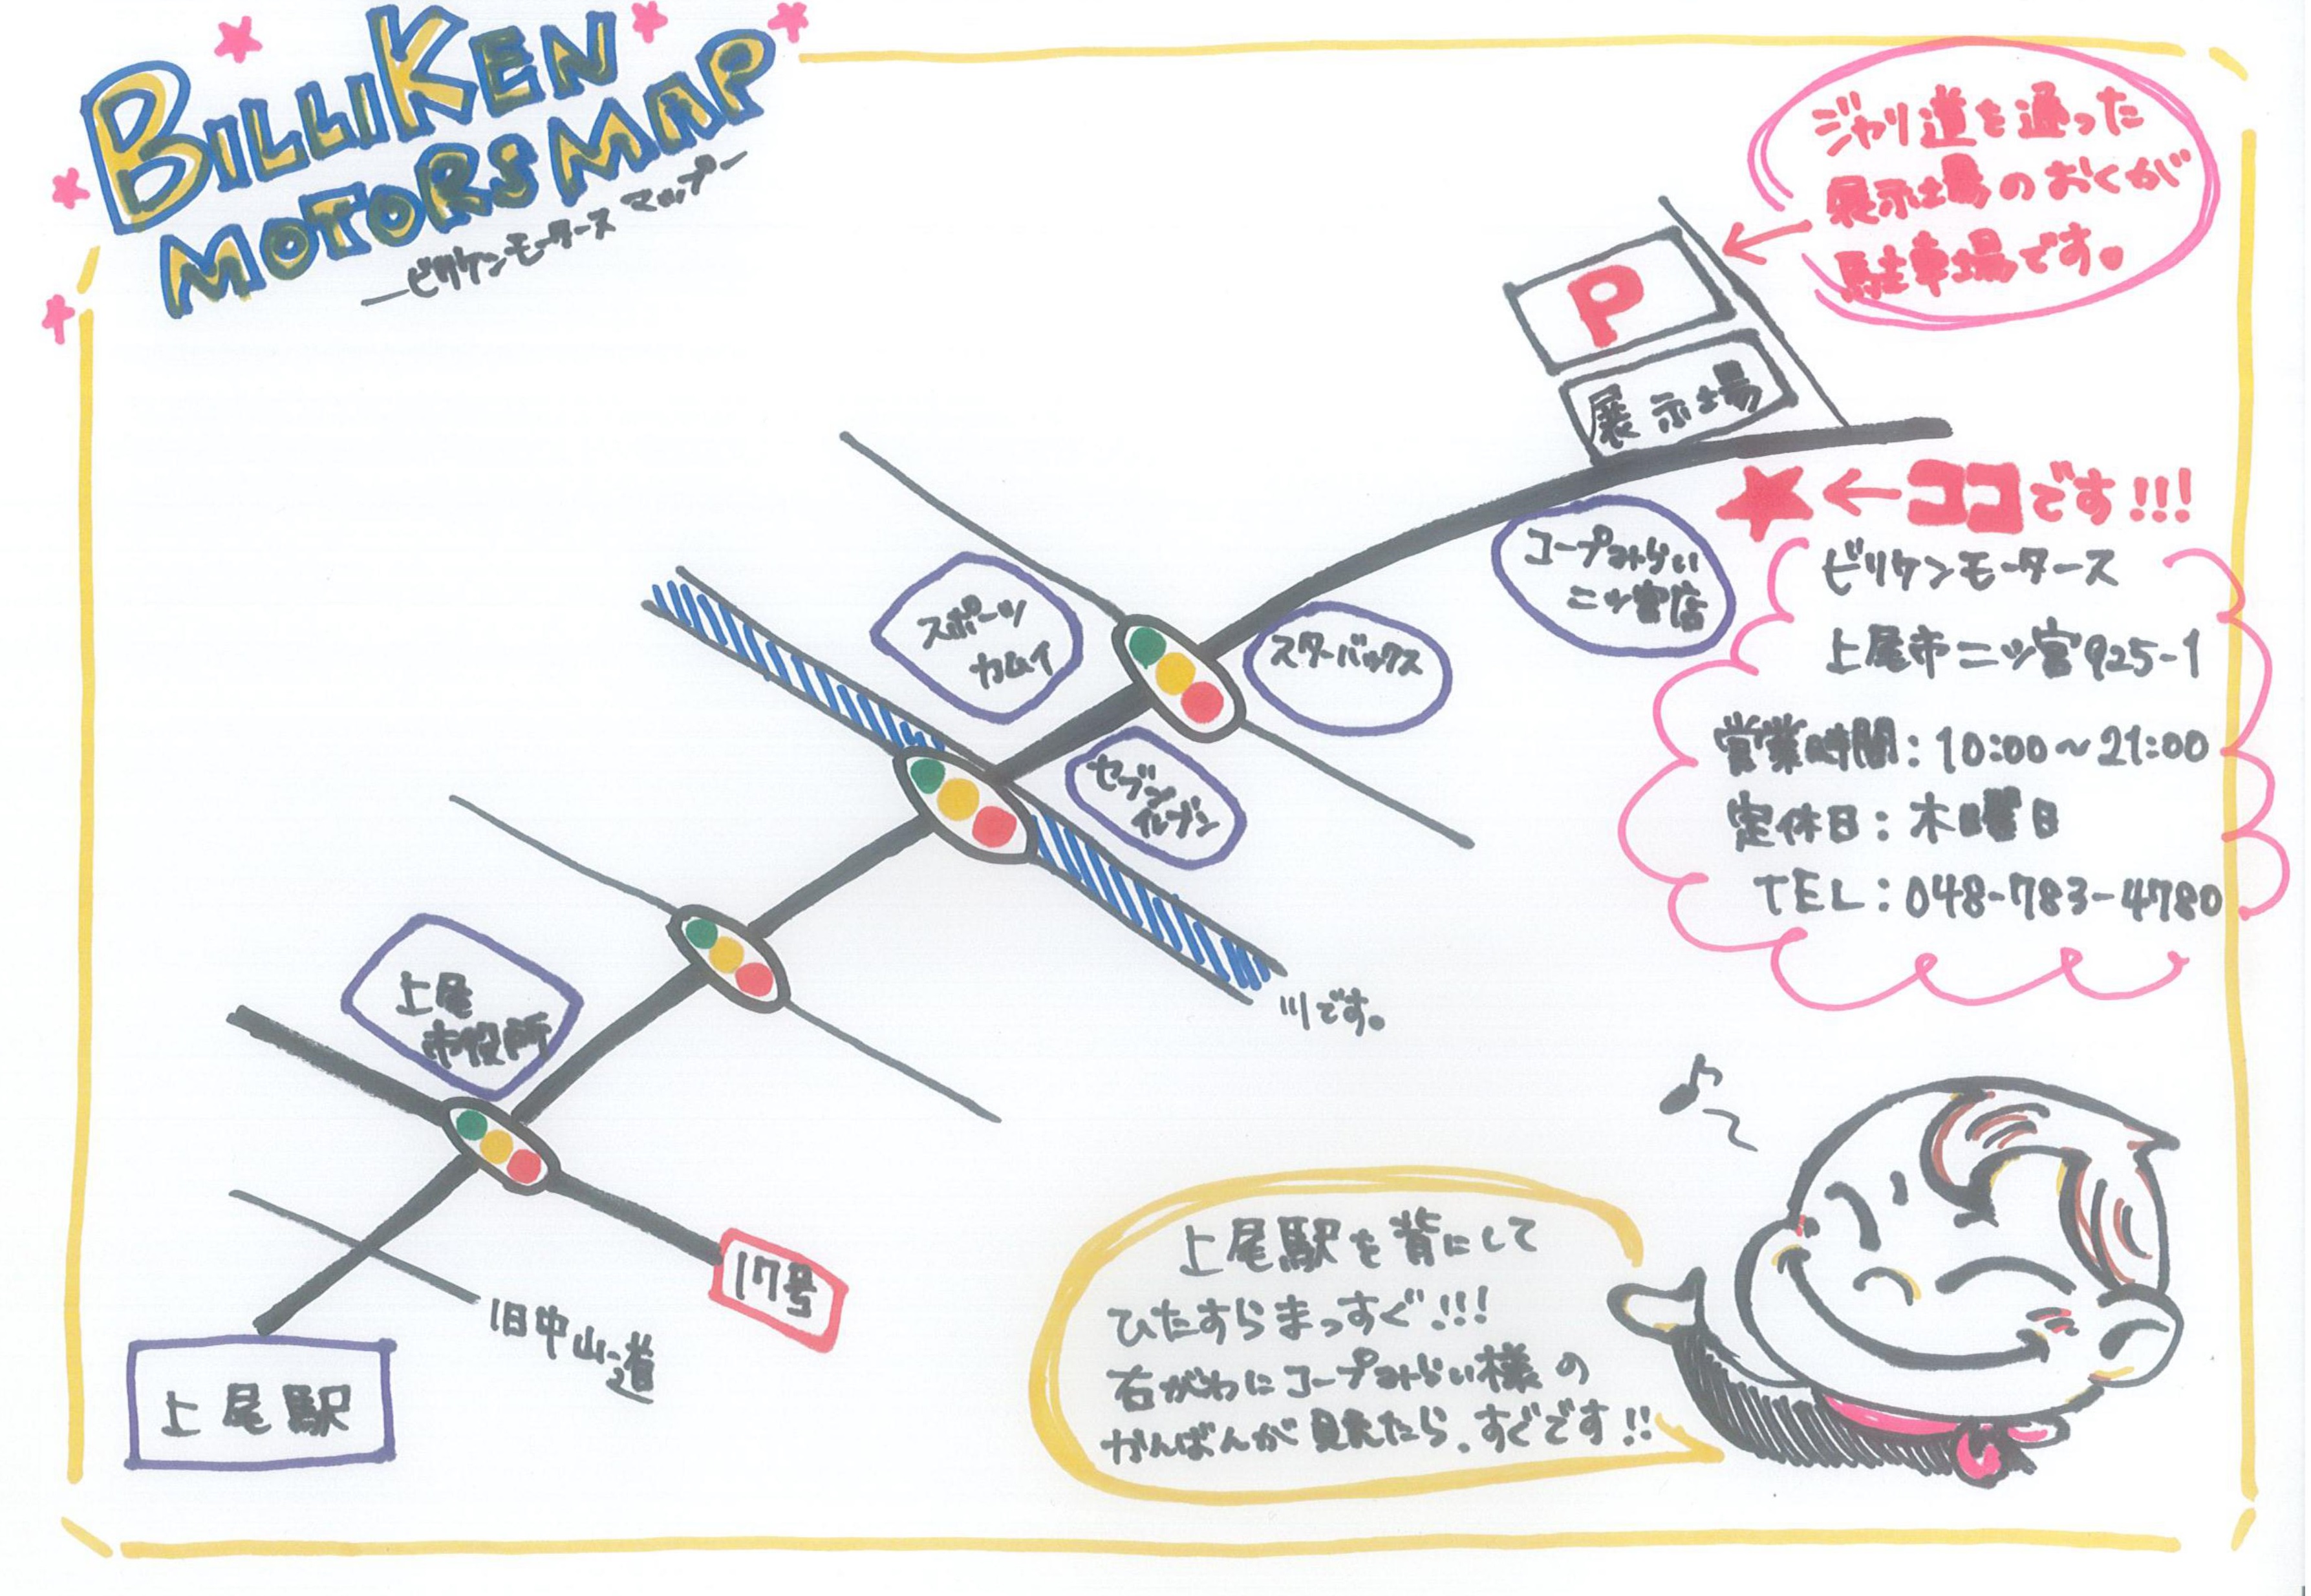 BILLIKEN
MOTORS MAP
ービリケンモータース マップー
ジャリ道を通った
展示場のおくが
駐車場です。
P
展示場
←ココです!!!
コープみらい
二ツ宮店
ビリケンモータース
上尾市二ツ宮925-1
営業時間:10:00~21:00
定休日:木曜日
TEL:048-783-4780
スポーツ
カムイ
スターバックス
セブン
イレブン
川です。
上尾
市役所
17号
旧中山道
上尾駅
上尾駅を背にして
ひたすらまっすぐ!!!
右がわにコープみらい様の
かんばんが見えたら、すぐです!!